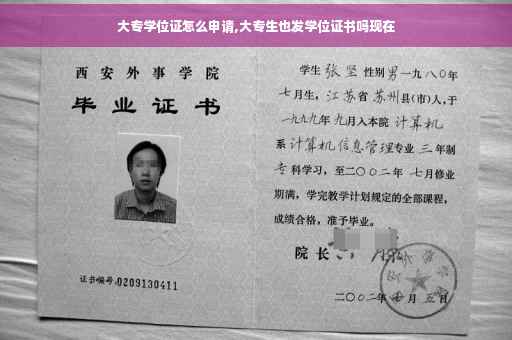 大专学位证怎么申请,大专生也发学位证书吗现在
西安外事学院
毕业证书
证书编号:0209130411
学生 张坚 性别男一九八〇年
七月生，江苏省 苏州县(市)人,于
一九九九年 九月入本院 计算机
系计算机信息管理专业 三 年制
专科学习，至二〇〇二年 七月修业
期满，学完教学计划规定的全部课程，
成绩合格，准予毕业。
院长
二〇〇二年 月 五日